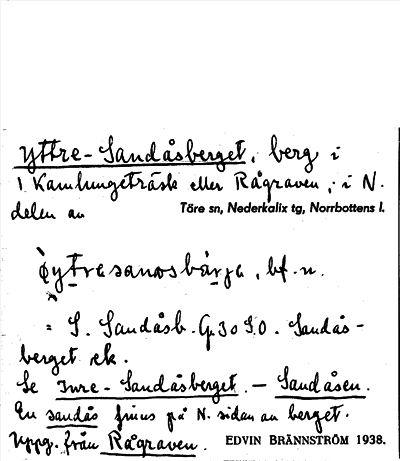 Yttre-Sandåsberget, berg i
1 Kamlungeträsk eller Rågraven, i N.
delen av Töre sn, Nederkalix tg, Norrbottens l.
bf. n.
= S. Sandåsb. G.30 S.O. Sandås-
berget ek.
Se Inre-Sandåsberget. – Sandåsen.
En sandås finns på N. sidan av berget.
Uppg. från Rågraven. EDVIN BRÄNNSTRÖM 1938.